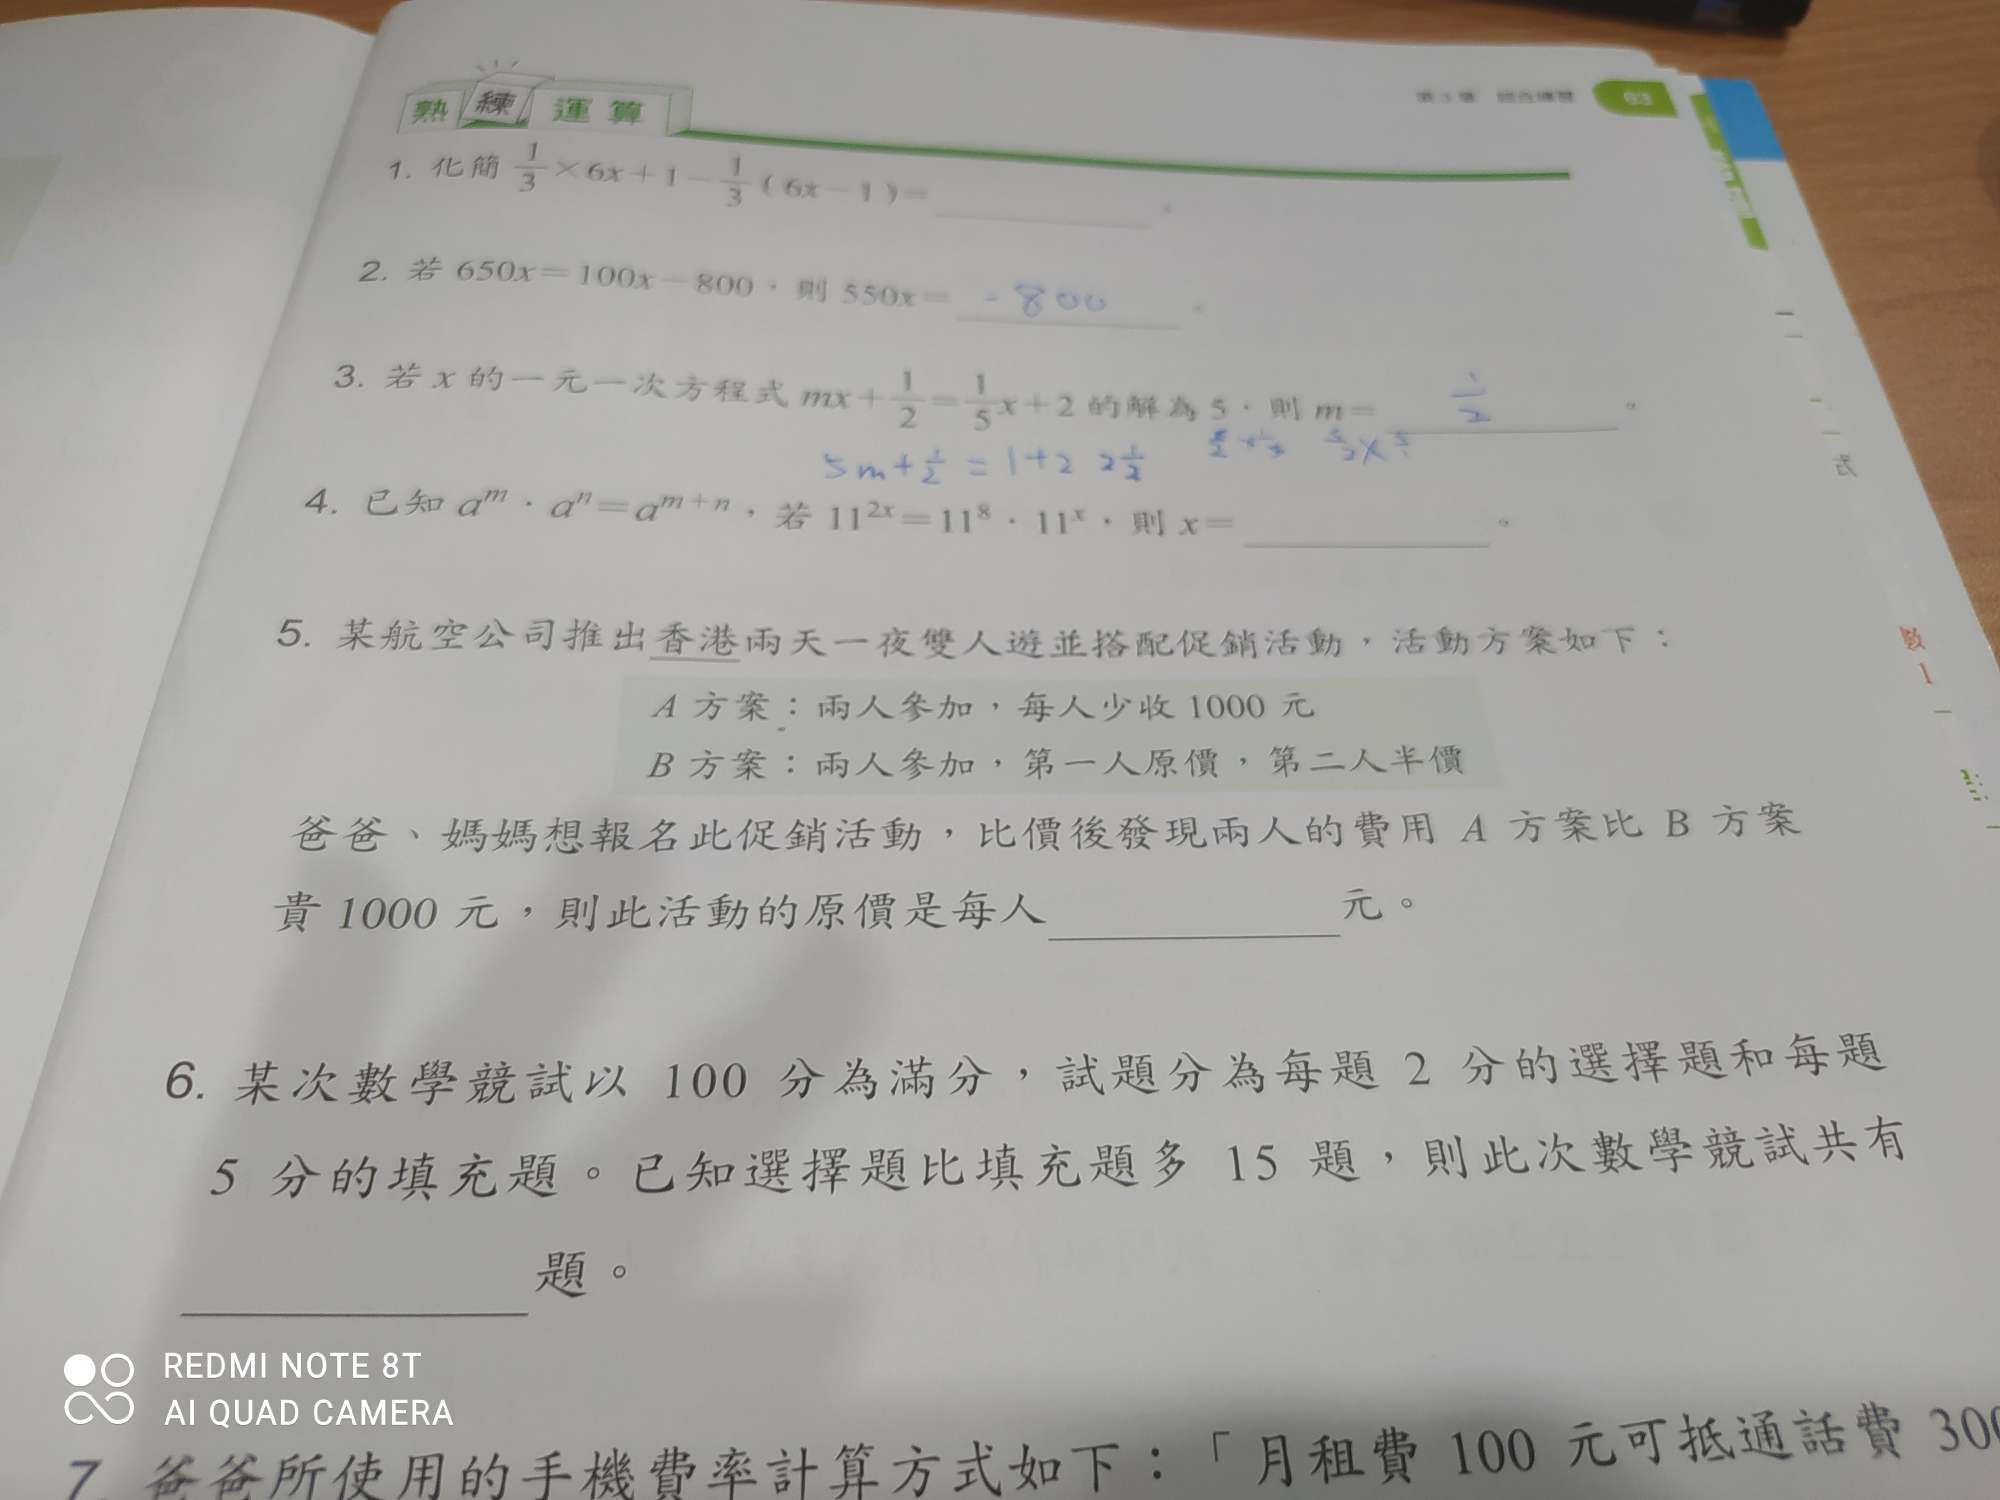 熟練運算
第3章 綜合練習 63
1. 化簡 1/3×6x+1-1/3(6x-1)=______。
2. 若 650x=100x-800,則 550x= -800 。
3. 若 x 的一元一次方程式 mx+1/2=1/5x+2 的解為 5,則 m= 1/2 。
5m+1/2=1+2 2 1/2
4. 已知 aᵐ·aⁿ=aᵐ⁺ⁿ,若 11²ˣ=11⁸·11ˣ,則 x=______。
5. 某航空公司推出香港兩天一夜雙人遊並搭配促銷活動,活動方案如下:
A 方案:兩人參加,每人少收 1000 元
B 方案:兩人參加,第一人原價,第二人半價
爸爸、媽媽想報名此促銷活動,比價後發現兩人的費用 A 方案比 B 方案
貴 1000 元,則此活動的原價是每人______元。
6. 某次數學競試以 100 分為滿分,試題分為每題 2 分的選擇題和每題
5 分的填充題。已知選擇題比填充題多 15 題,則此次數學競試共有
______題。
7. 爸爸所使用的手機費率計算方式如下:「月租費 100 元可抵通話費 300
數
1
REDMI NOTE 8T
AI QUAD CAMERA